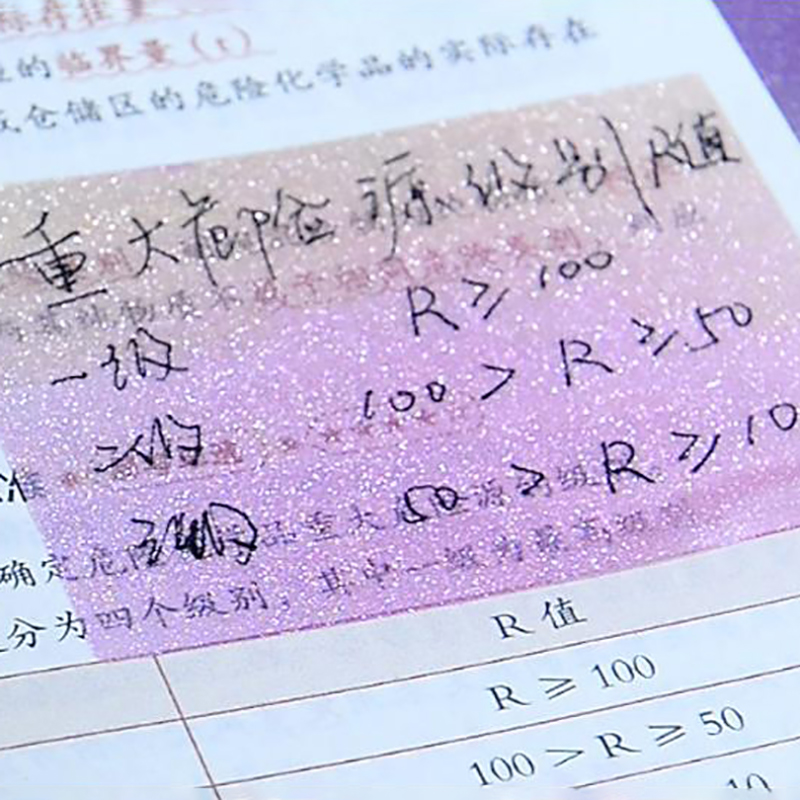 标存在量
的临界量(t)
仓储区的危险化学品的实际存在
重大危险源级别 R值
一级 R ≥ 100
二级 100 > R ≥ 50
三级 50 > R ≥ 10
准
确定危险
品重大
源的级
分为四个级别，其中一级为最高级别
R 值
R ≥ 100
100 > R ≥ 50
10